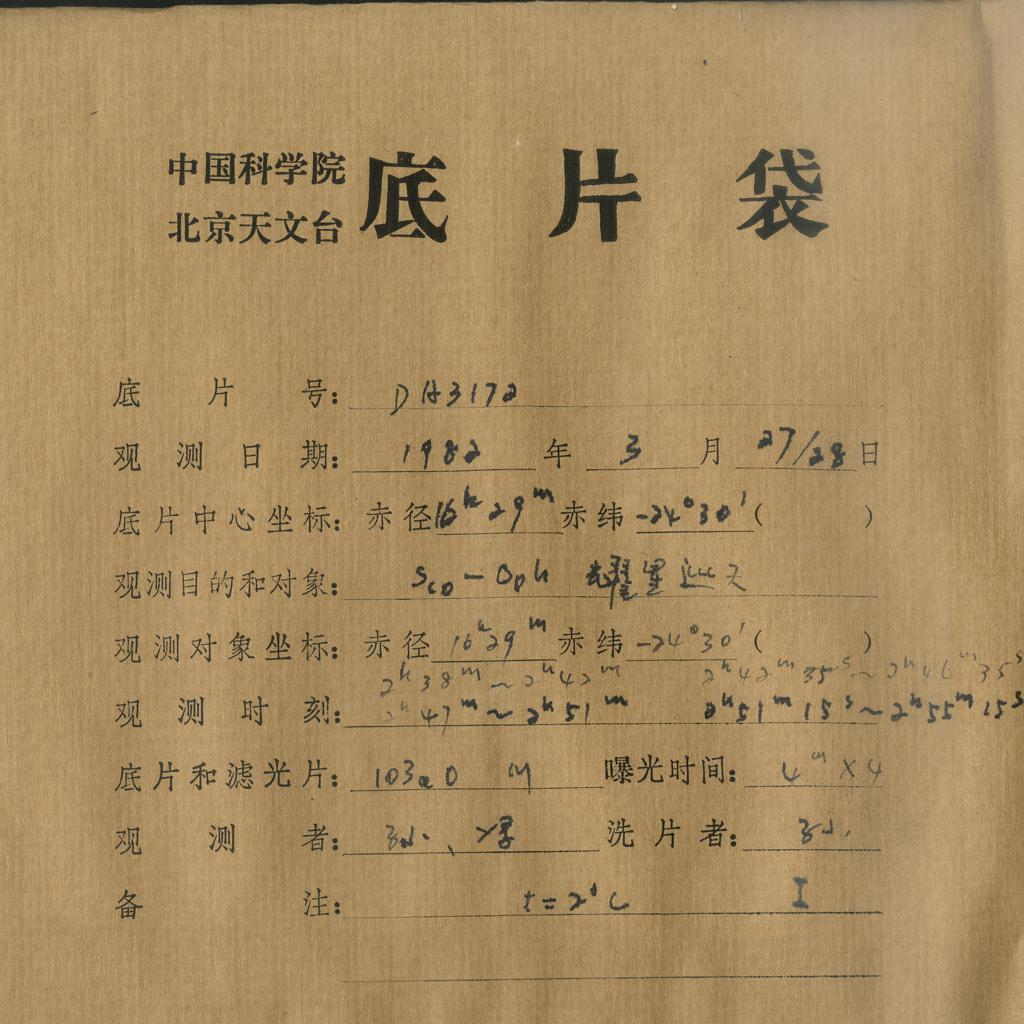 中国科学院
北京天文台
底片袋
底片号: DA3172
观测日期: 1982年3月27/28日
底片中心坐标: 赤径16ʰ29ᵐ赤纬-24°30′( )
观测目的和对象: Sco-Oph 耀星巡天
观测对象坐标: 赤径16ʰ29ᵐ赤纬-24°30′( )
2ʰ38ᵐ~2ʰ42ᵐ 2ʰ42ᵐ35ˢ~2ʰ46ᵐ35ˢ
观测时刻: 2ʰ47ᵐ~2ʰ51ᵐ 2ʰ51ᵐ15ˢ~2ʰ55ᵐ15ˢ
底片和滤光片: 103aO 曝光时间: 4ᵐ×4
观测者: 洗片者:
备注: t=2°C I